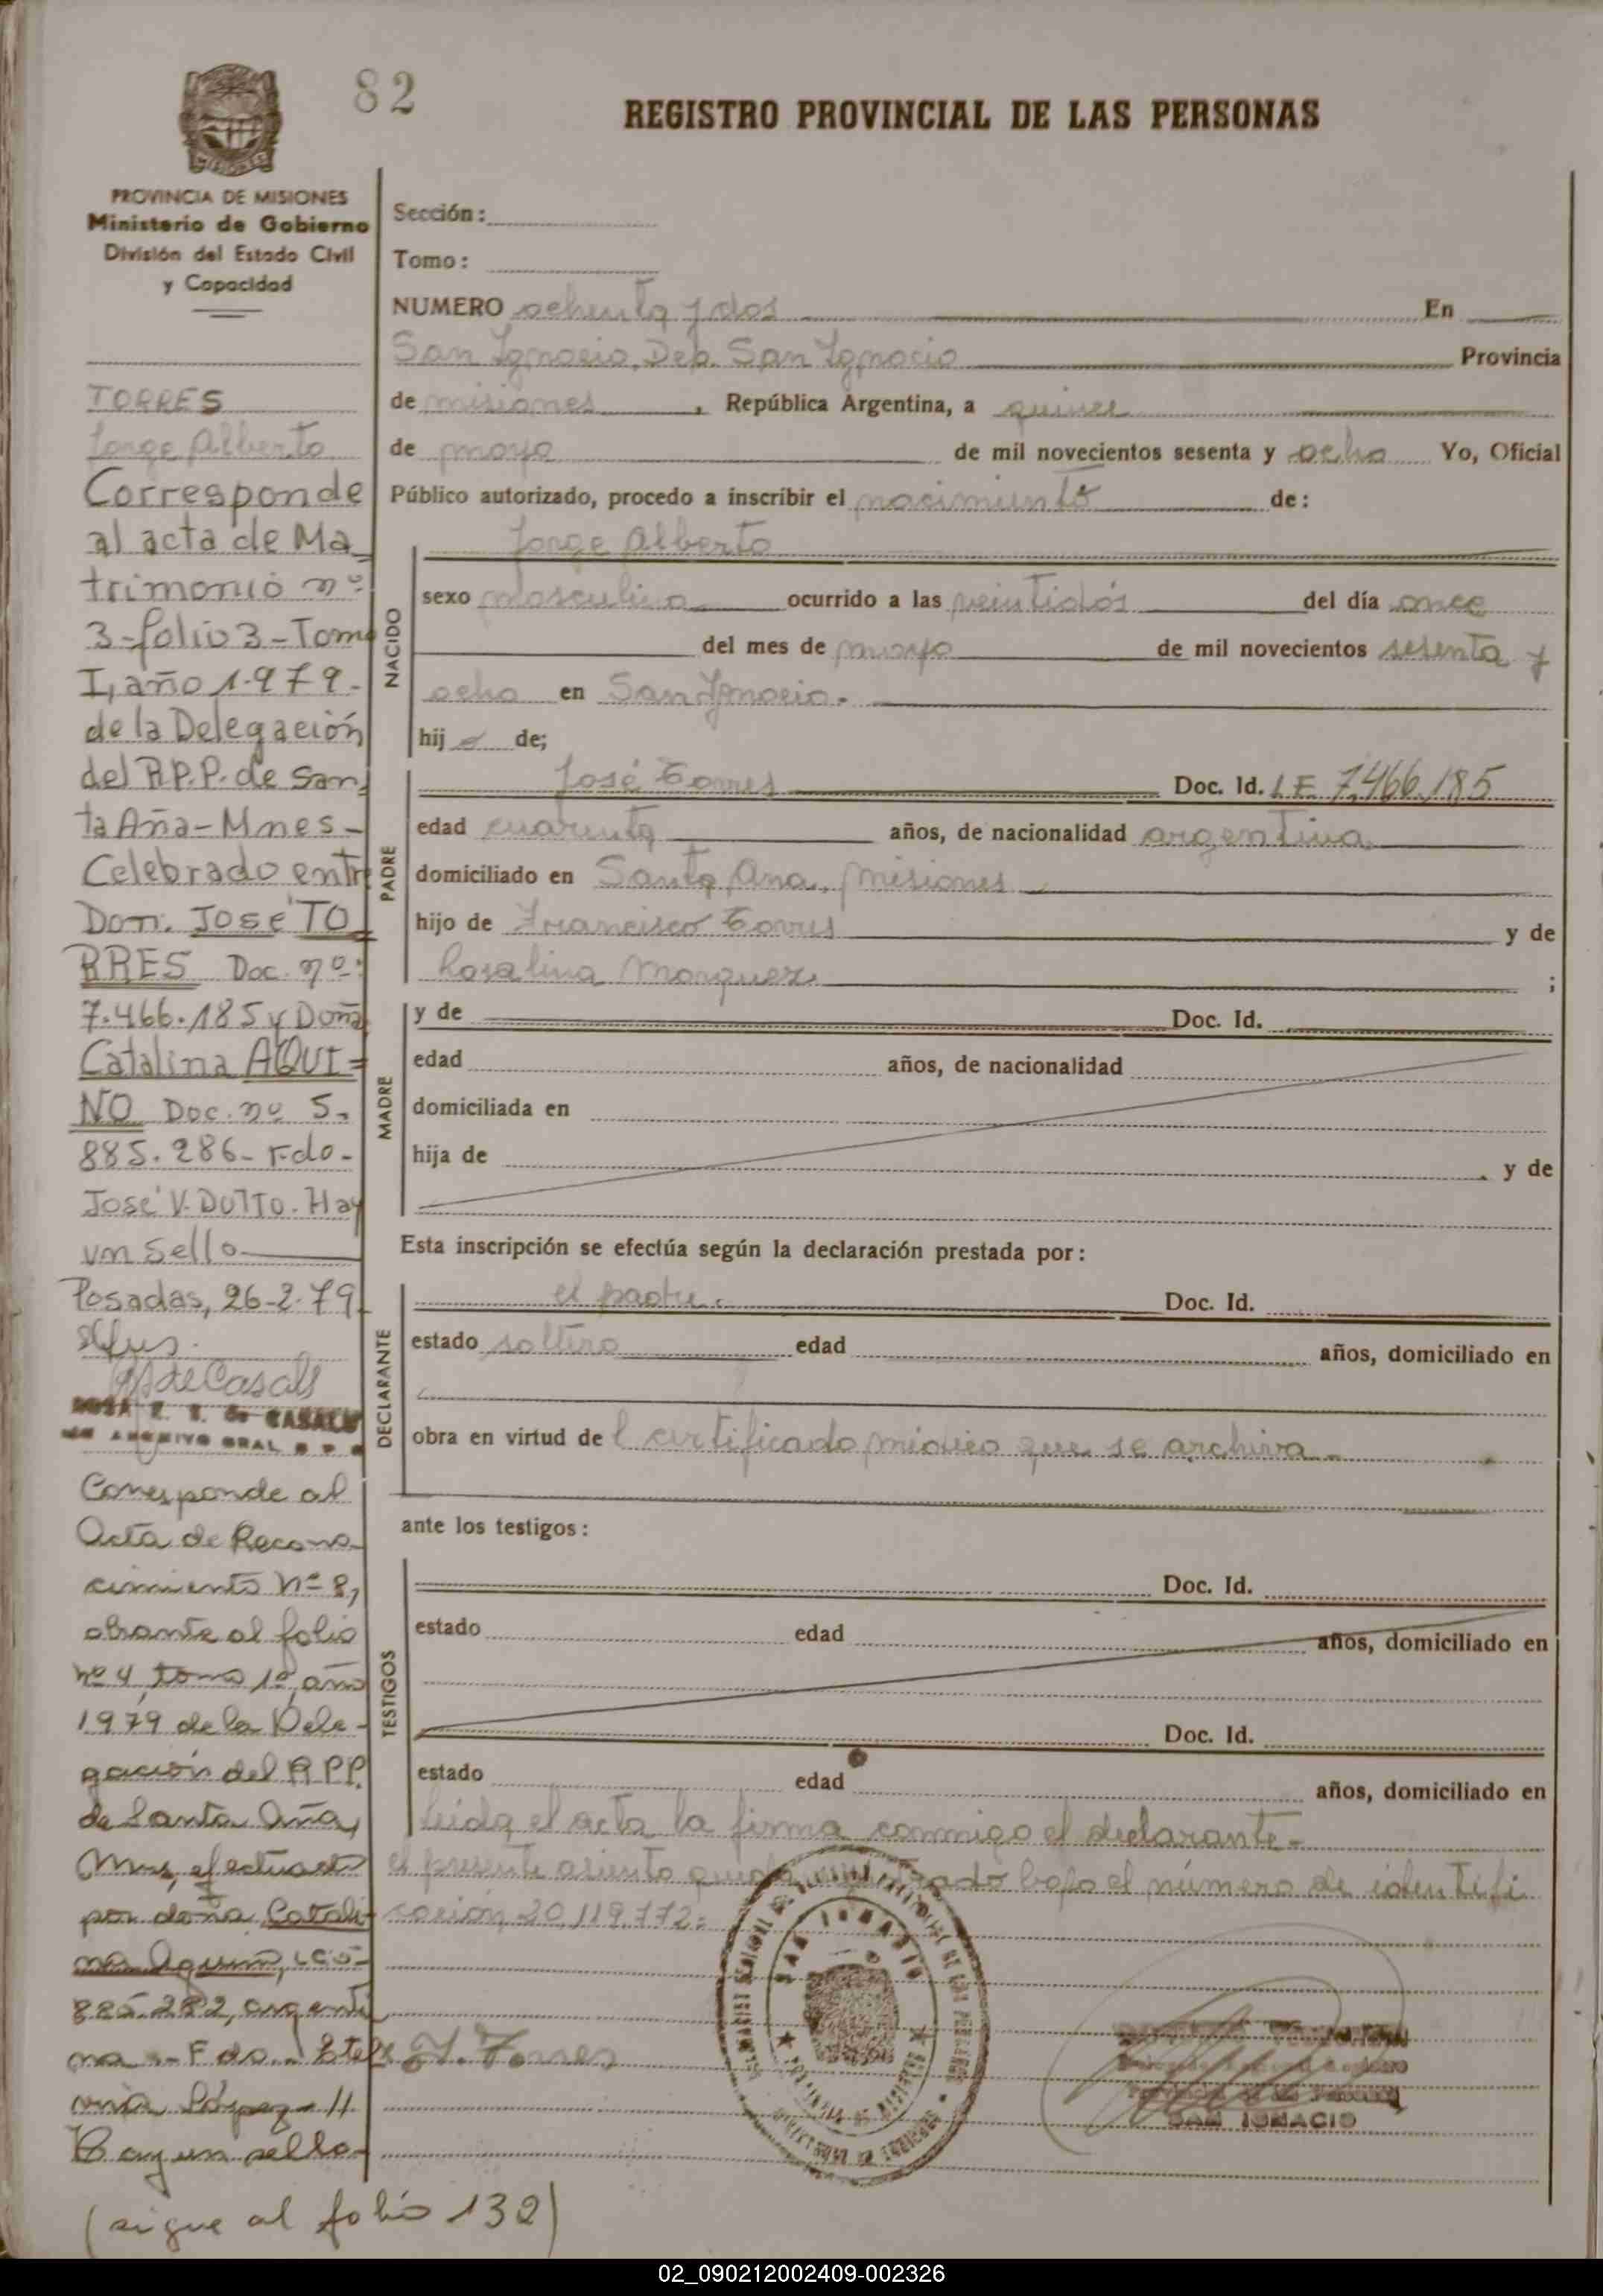 82
REGISTRO PROVINCIAL DE LAS PERSONAS
PROVINCIA DE MISIONES
Ministerio de Gobierno
División del Estado Civil
y Capacidad
TORRES
Jorge Alberto
Corresponde
al acta de Ma_
trimonio nº
3-folio 3-Tomo
I, año 1.979-
de la Delegación
del R.P.P. de San_
ta Aña-Mnes-
Celebrado entre
Don. José TO_
RRES Doc. nº:
7.466.185 y Doña
Catalina AQUI=
NO Doc. nº 5.
885.286- Fdo-
José V. DUTTO. Hay
un sello
Posadas, 26-2-79
de Casals
ROSA E. T. de CASALS
Corresponde al
Acta de Recono_
cimiento Nº 8,
obrante al folio
nº 4, tomo 1º, año
1979 de la Dele-
gación del R.P.P.
de Santa Aña,
Mnes, efectuado
por doña Catali-
na Aquino,
argenti
na.- Fdo. Stel
López - H
Hay un sello-
(sigue al folio 132)
Sección:
Tomo:
NUMERO ochenta y dos En
San Ignacio, Dep. San Ignacio Provincia
de misiones, República Argentina, a quince
de mayo de mil novecientos sesenta y ocho Yo, Oficial
Público autorizado, procedo a inscribir el nacimiento de:
Jorge Alberto
NACIDO
sexo masculino ocurrido a las veintidós del día once
del mes de mayo de mil novecientos sesenta y
ocho en San Ignacio.-
hij o de;
PADRE
José Torres Doc. Id. L.E. 7.466.185
edad cuarenta años, de nacionalidad argentina
domiciliado en Santa Ana, misiones
hijo de Francisco Torres y de
Rosalina Marquez ;
MADRE
y de Doc. Id.
edad años, de nacionalidad
domiciliada en
hija de y de
Esta inscripción se efectúa según la declaración prestada por:
DECLARANTE
el padre. Doc. Id.
estado soltero edad años, domiciliado en
obra en virtud del certificado médico que se archiva-
ante los testigos:
TESTIGOS
Doc. Id.
estado edad años, domiciliado en
Doc. Id.
estado edad años, domiciliado en
Leida el acta la firma conmigo el declarante-
el presente asiento queda registrado bajo el número de identifi
cación 20.119.772-
J. Torres
SAN IGNACIO
SAN IGNACIO
02_090212002409-002326